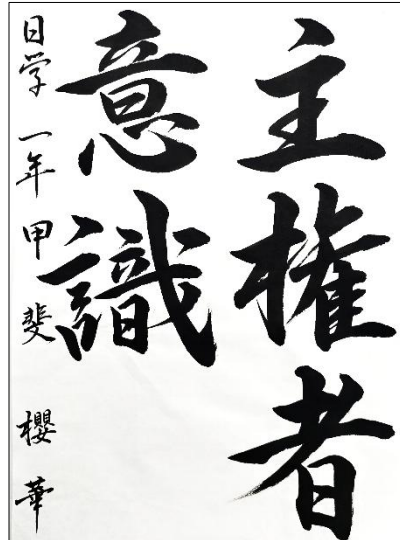 主権者
意識
日学 一年 甲斐 櫻華